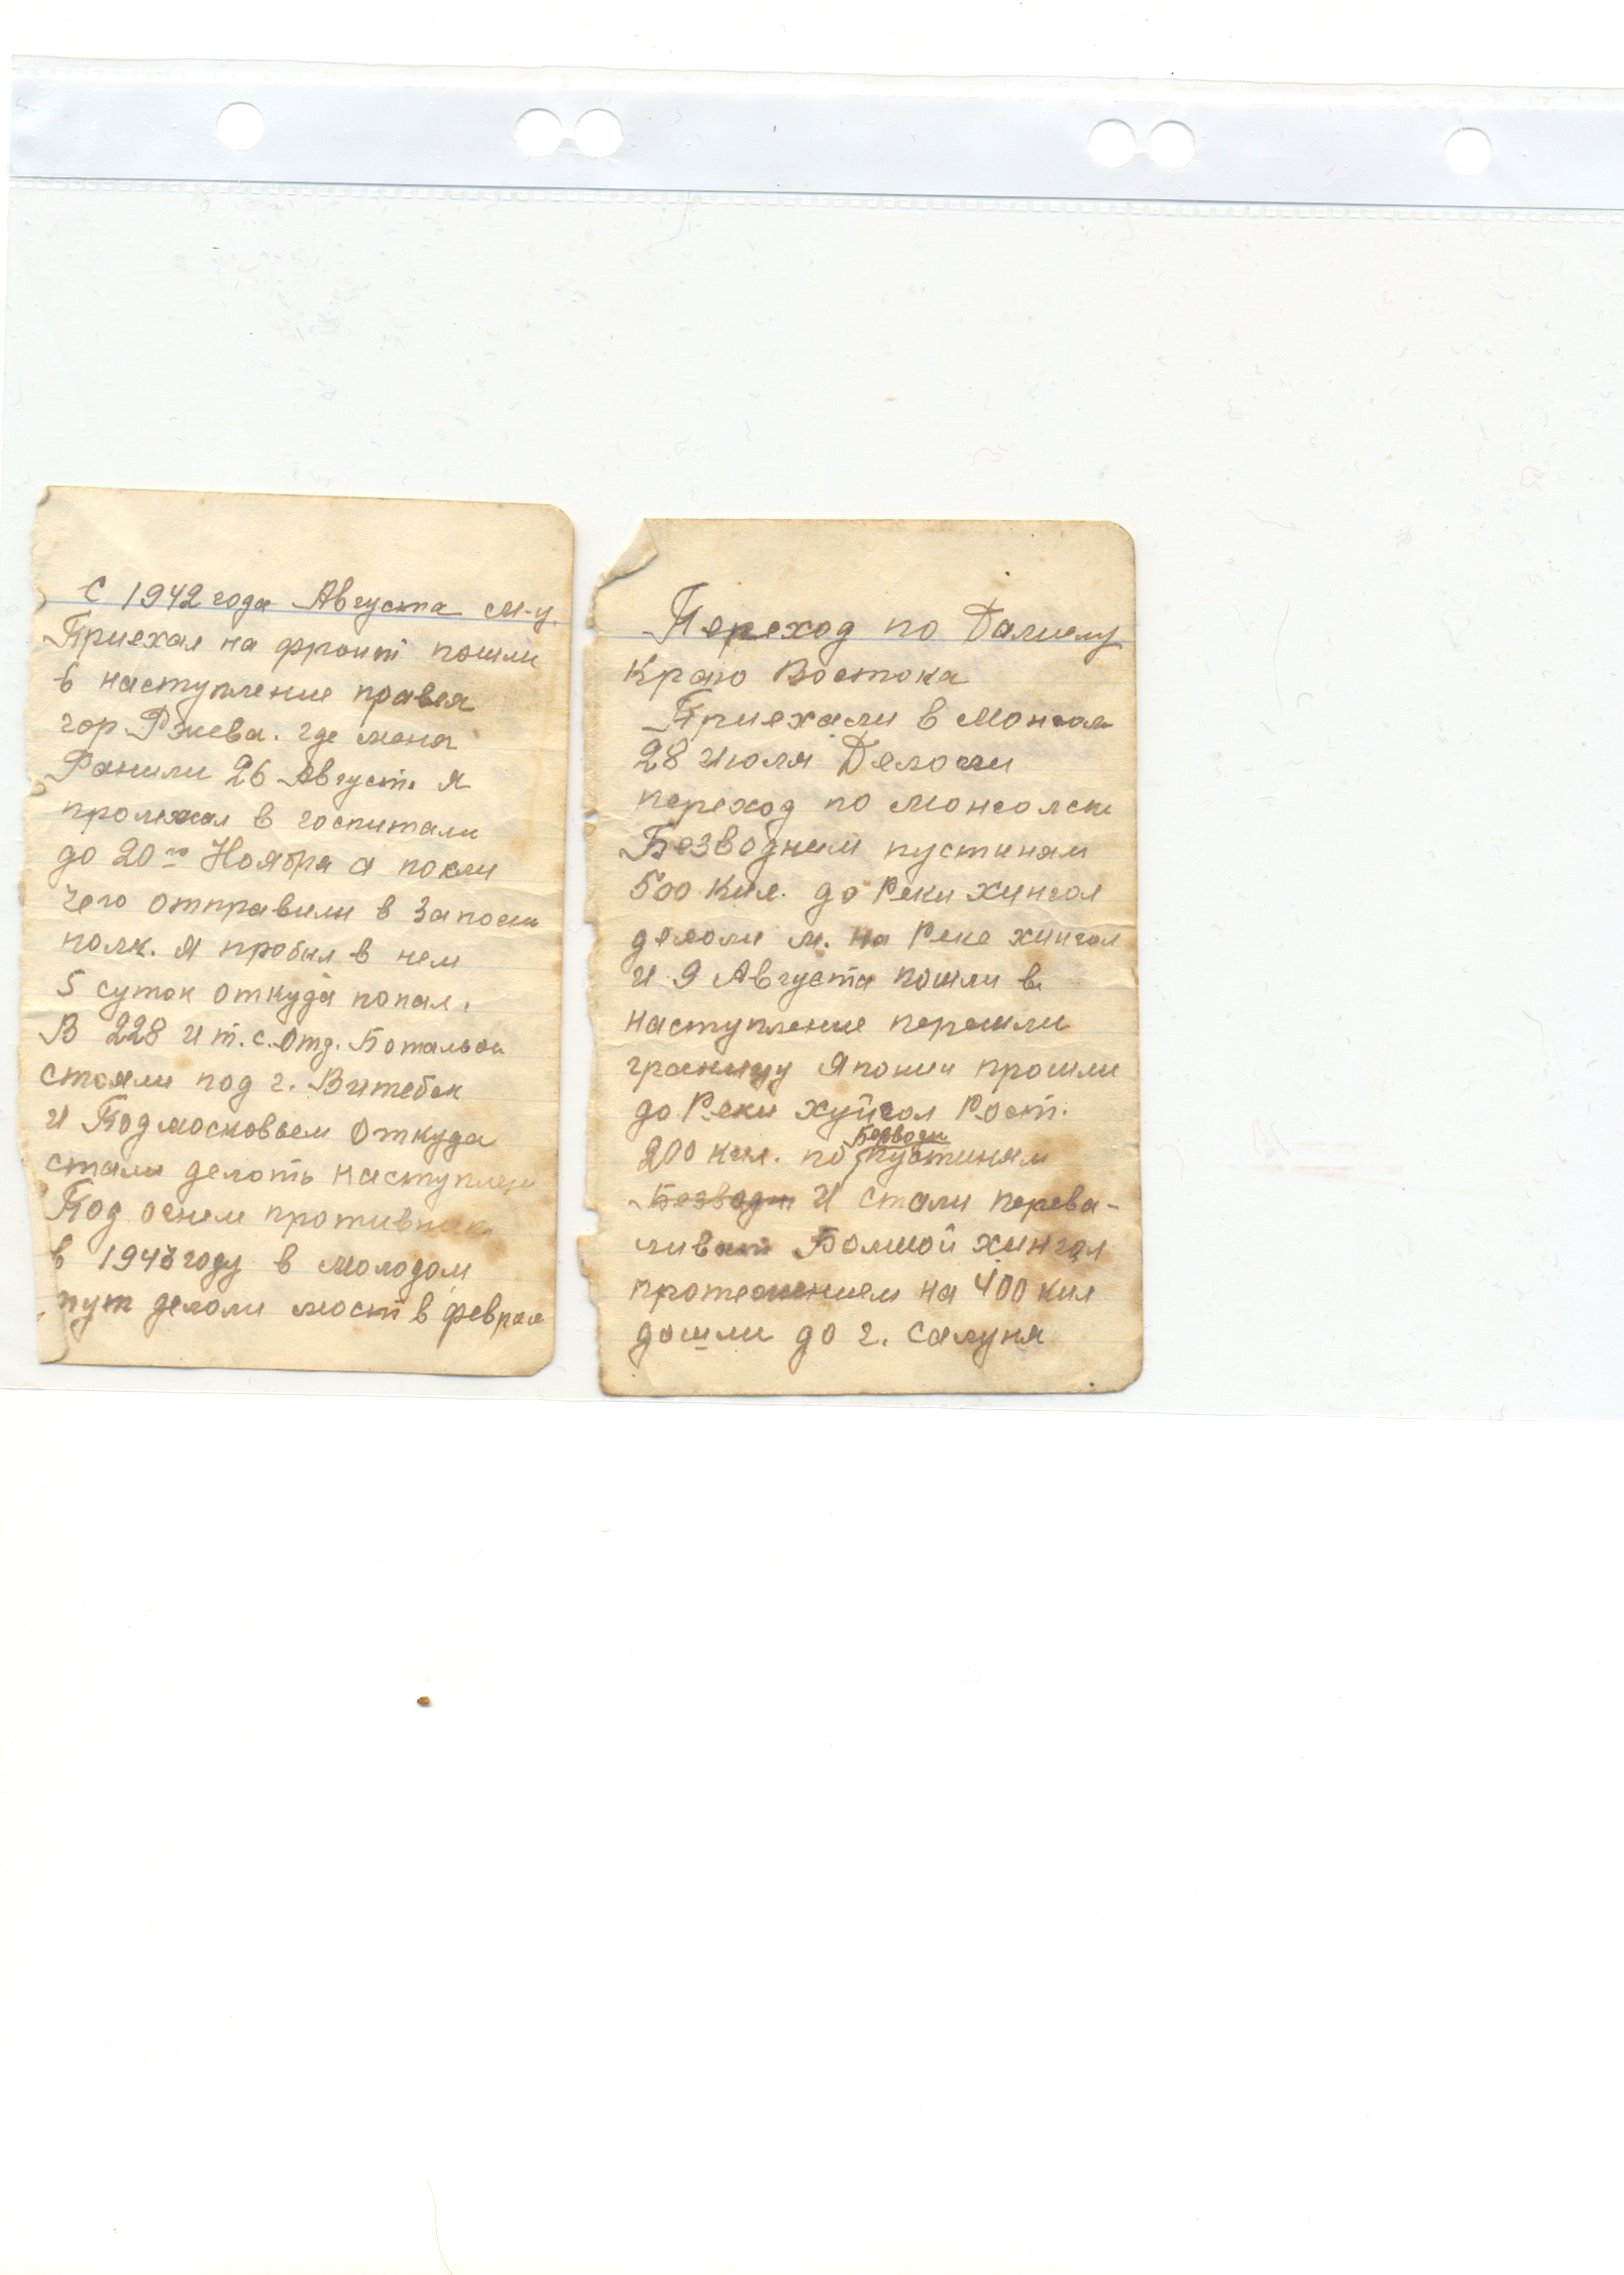 С 1942 года Августа м-у.
Приехал на фронт пошли
в наступление правея
гор. Ржева. где меня
Ранили 26 Август. я
пролежал в госпитали
до 20го Ноября а посли
чего отправили в Запосн
полк. я пробыл в нем
5 суток откуда попал.
В 228 и т.с. отд. Батальон
стояли под г. Витебск
и Подмосковьем откуда
стали делоть наступлен
Под огнем противник
в 1943 году в молодом
пут делоли мост в феврал
Переход по Далнему
Краю Востока
Приехали в Монгол
28 июля Делоли
переход по монголск
Безводным пустиням
500 кил. до Реки хингол
делоли м. на Реке хингол
и 9 Августа пошли в
наступление перешли
границу Японии прошли
до Реки хуйгол Рост.
200 кил. по Безводн пустиням
Безводн. И стали перева-
ливат Болшой хингал
протежением на 400 кил
дошли до г. Салуня